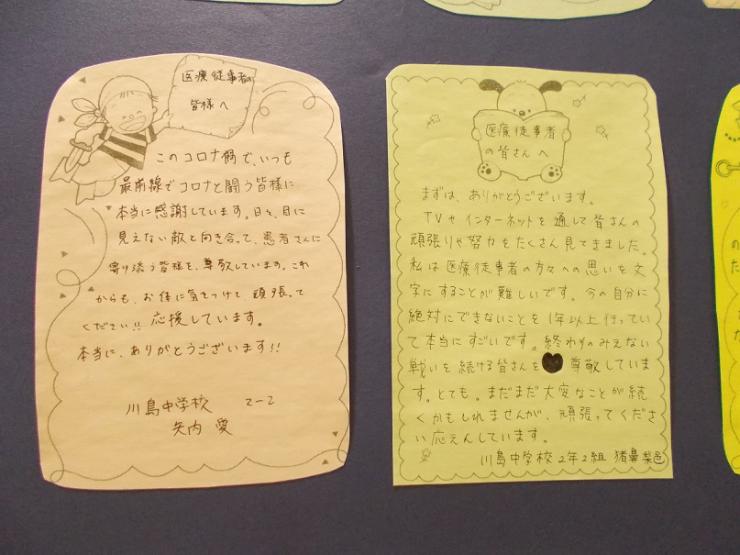 医療従事者の
皆様へ
このコロナ禍で、いつも
最前線でコロナと闘う皆様に
本当に感謝しています。日々、目に
見えない敵と向き合って、患者さんに
寄り添う皆様を、尊敬しています。これ
からも、お体に気をつけて、頑張って
ください!!応援しています。
本当に、ありがとうございます!!
川島中学校 2-2
矢内 愛
医療従事者
の皆さんへ
まずは、ありがとうございます。
TVやインターネットを通して皆さんの
頑張りや努力をたくさん見てきました。
私は医療従事者の方々への思いを文
字にすることが難しいです。今の自分に
絶対にできないことを1年以上行ってい
て本当にすごいです。終わりのみえない
戦いを続ける皆さんを 尊敬していま
す。とても。まだまだ大変なことが続
くかもしれませんが、頑張ってくださ
い応えんしています。
川島中学校 2年2組 猪鼻 梨邑